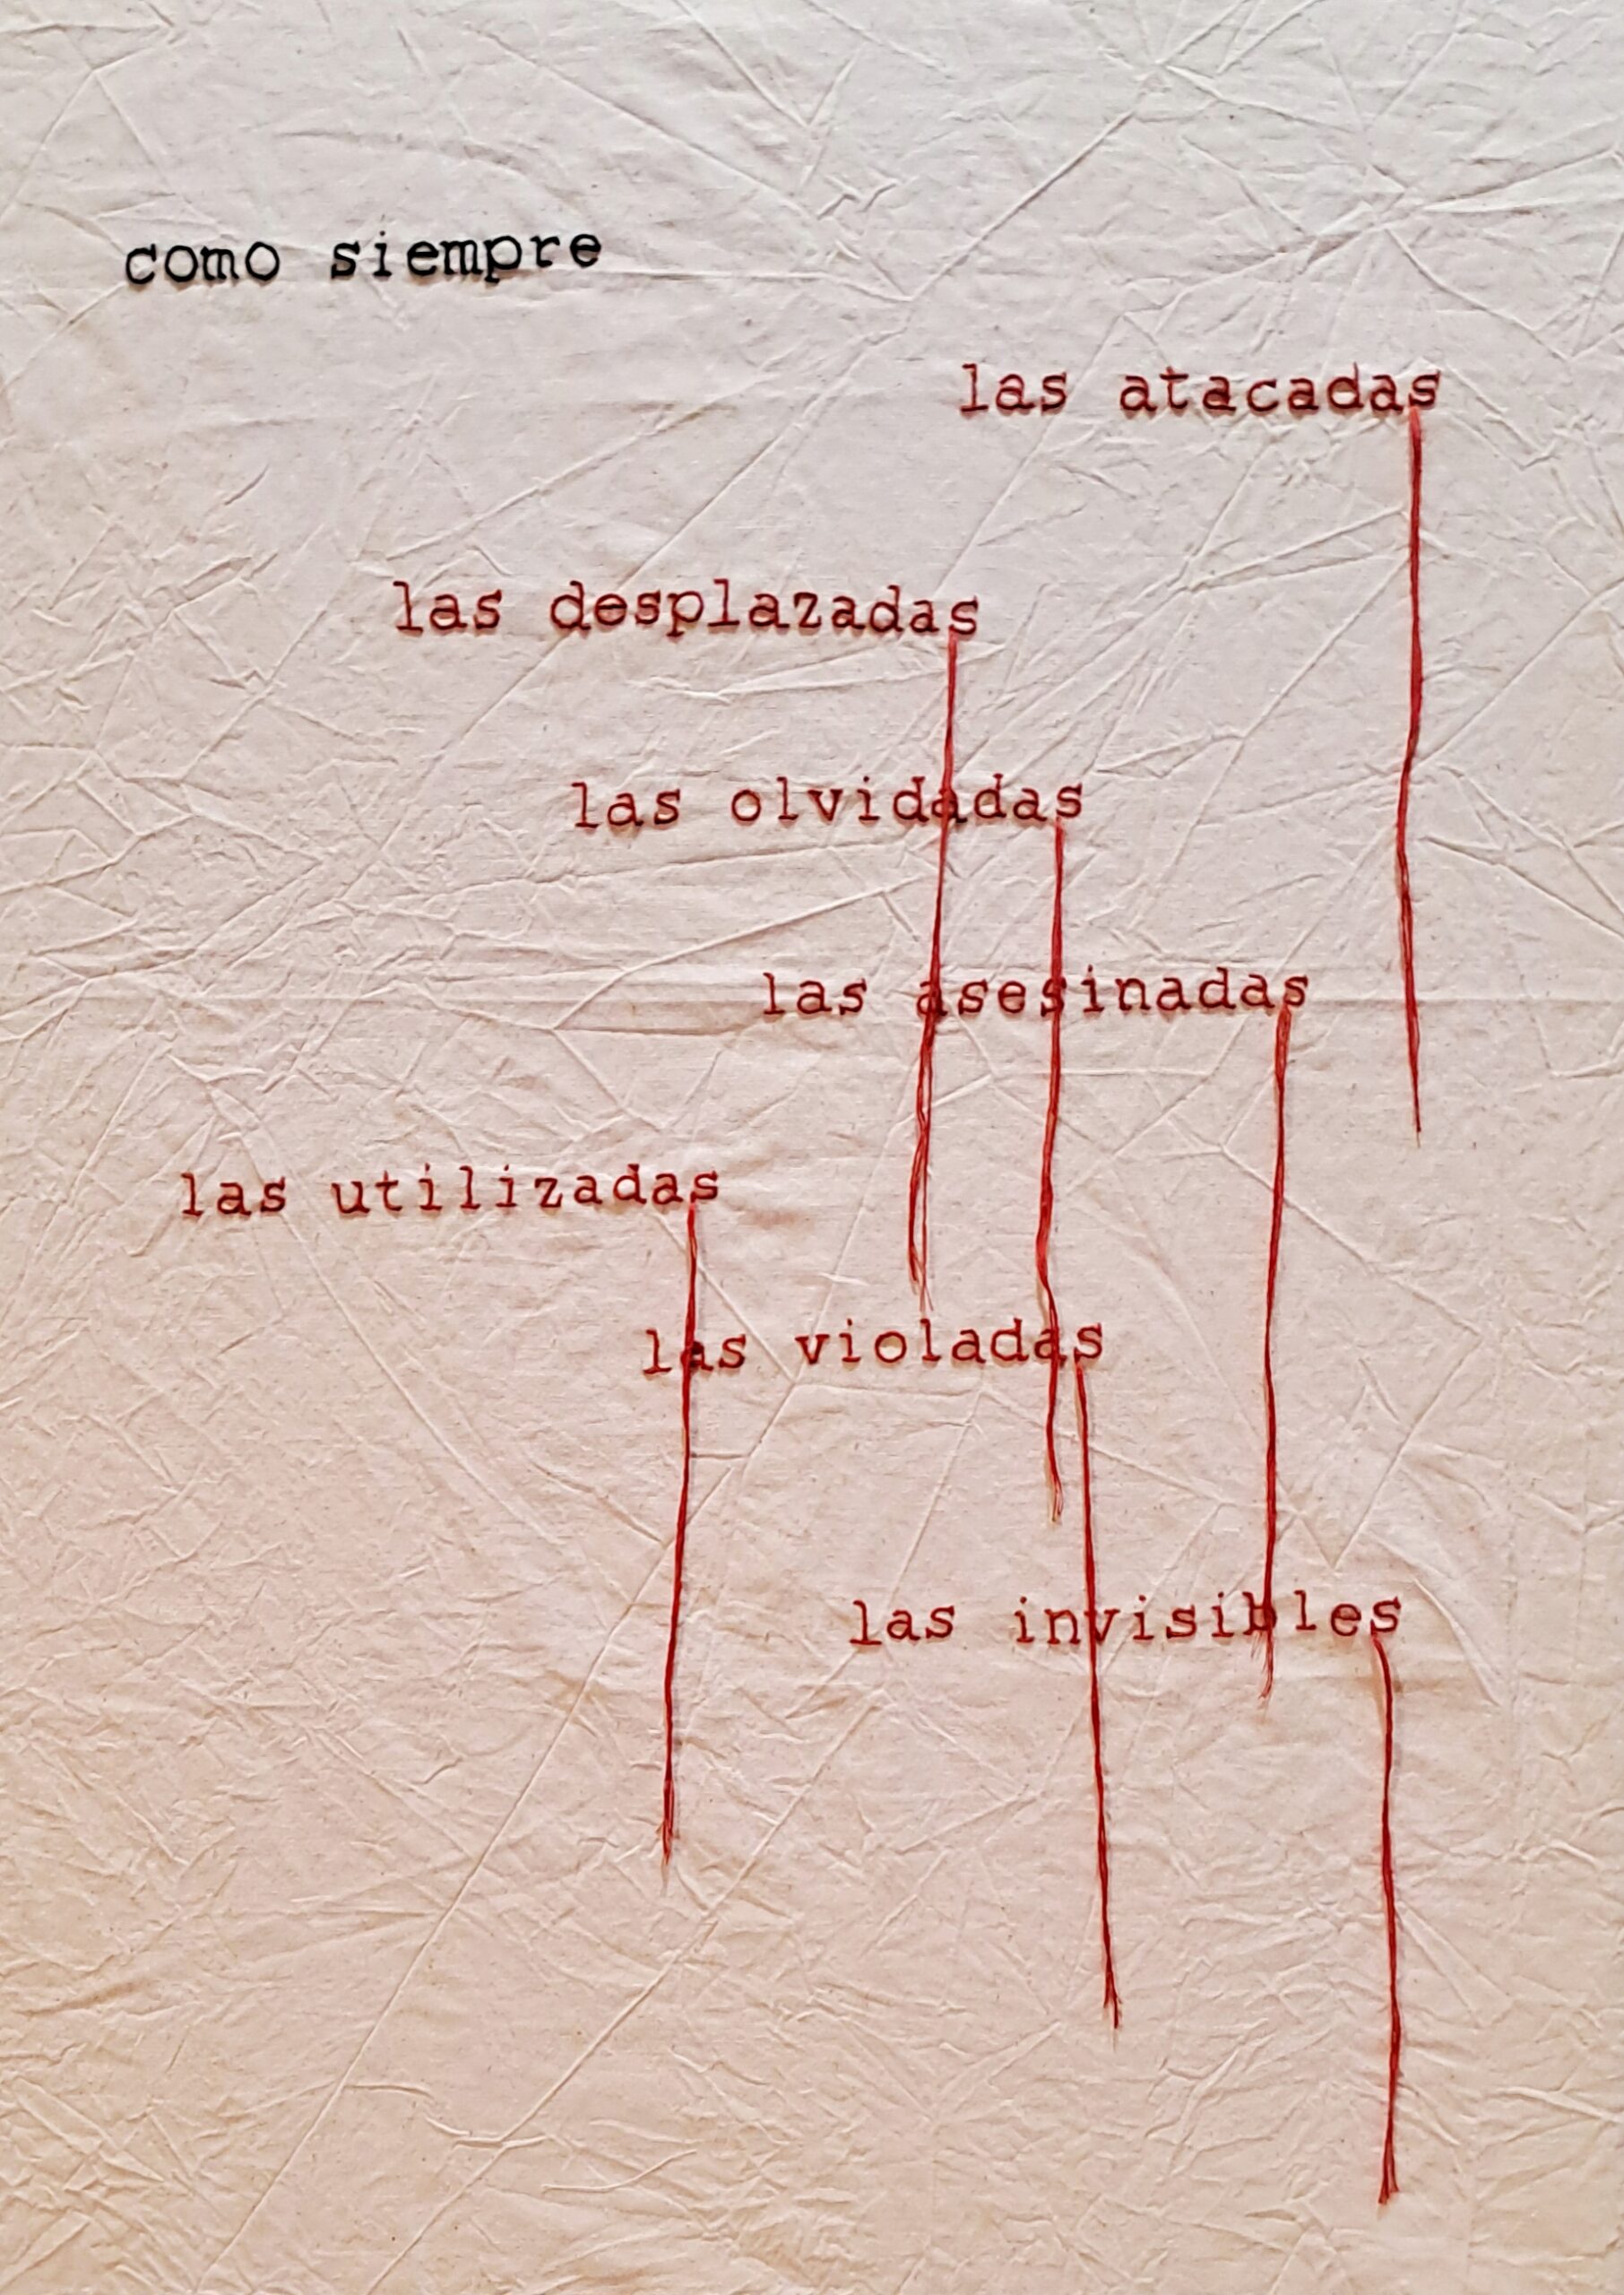 como siempre
las atacadas
las desplazadas
las olvidadas
las asesinadas
las utilizadas
las violadas
las invisibles